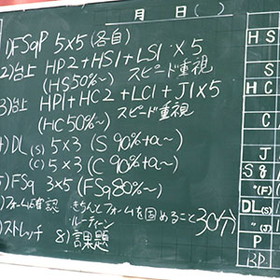 月 日( )
1)FSqP 5×5 (各自)
2)台上 HP2+HS1+LS1×5
(HS50%~) スピード重視
3)台上 HP1+HC2+LC1+J1×5
(HC50%~) スピード重視
4)DL(S) 5×3 (S 90%+α~)
(C) 5×3 (C 90%+α~)
5)FSq 3×5 (FSq80%~)
6)フォーム確認 きちんとフォームを固めること30分
ルーティーン
7)ストレッチ 8)課題
HS
S
HC
J
S8
"(F)
DL(S)
"(J)
P
BP